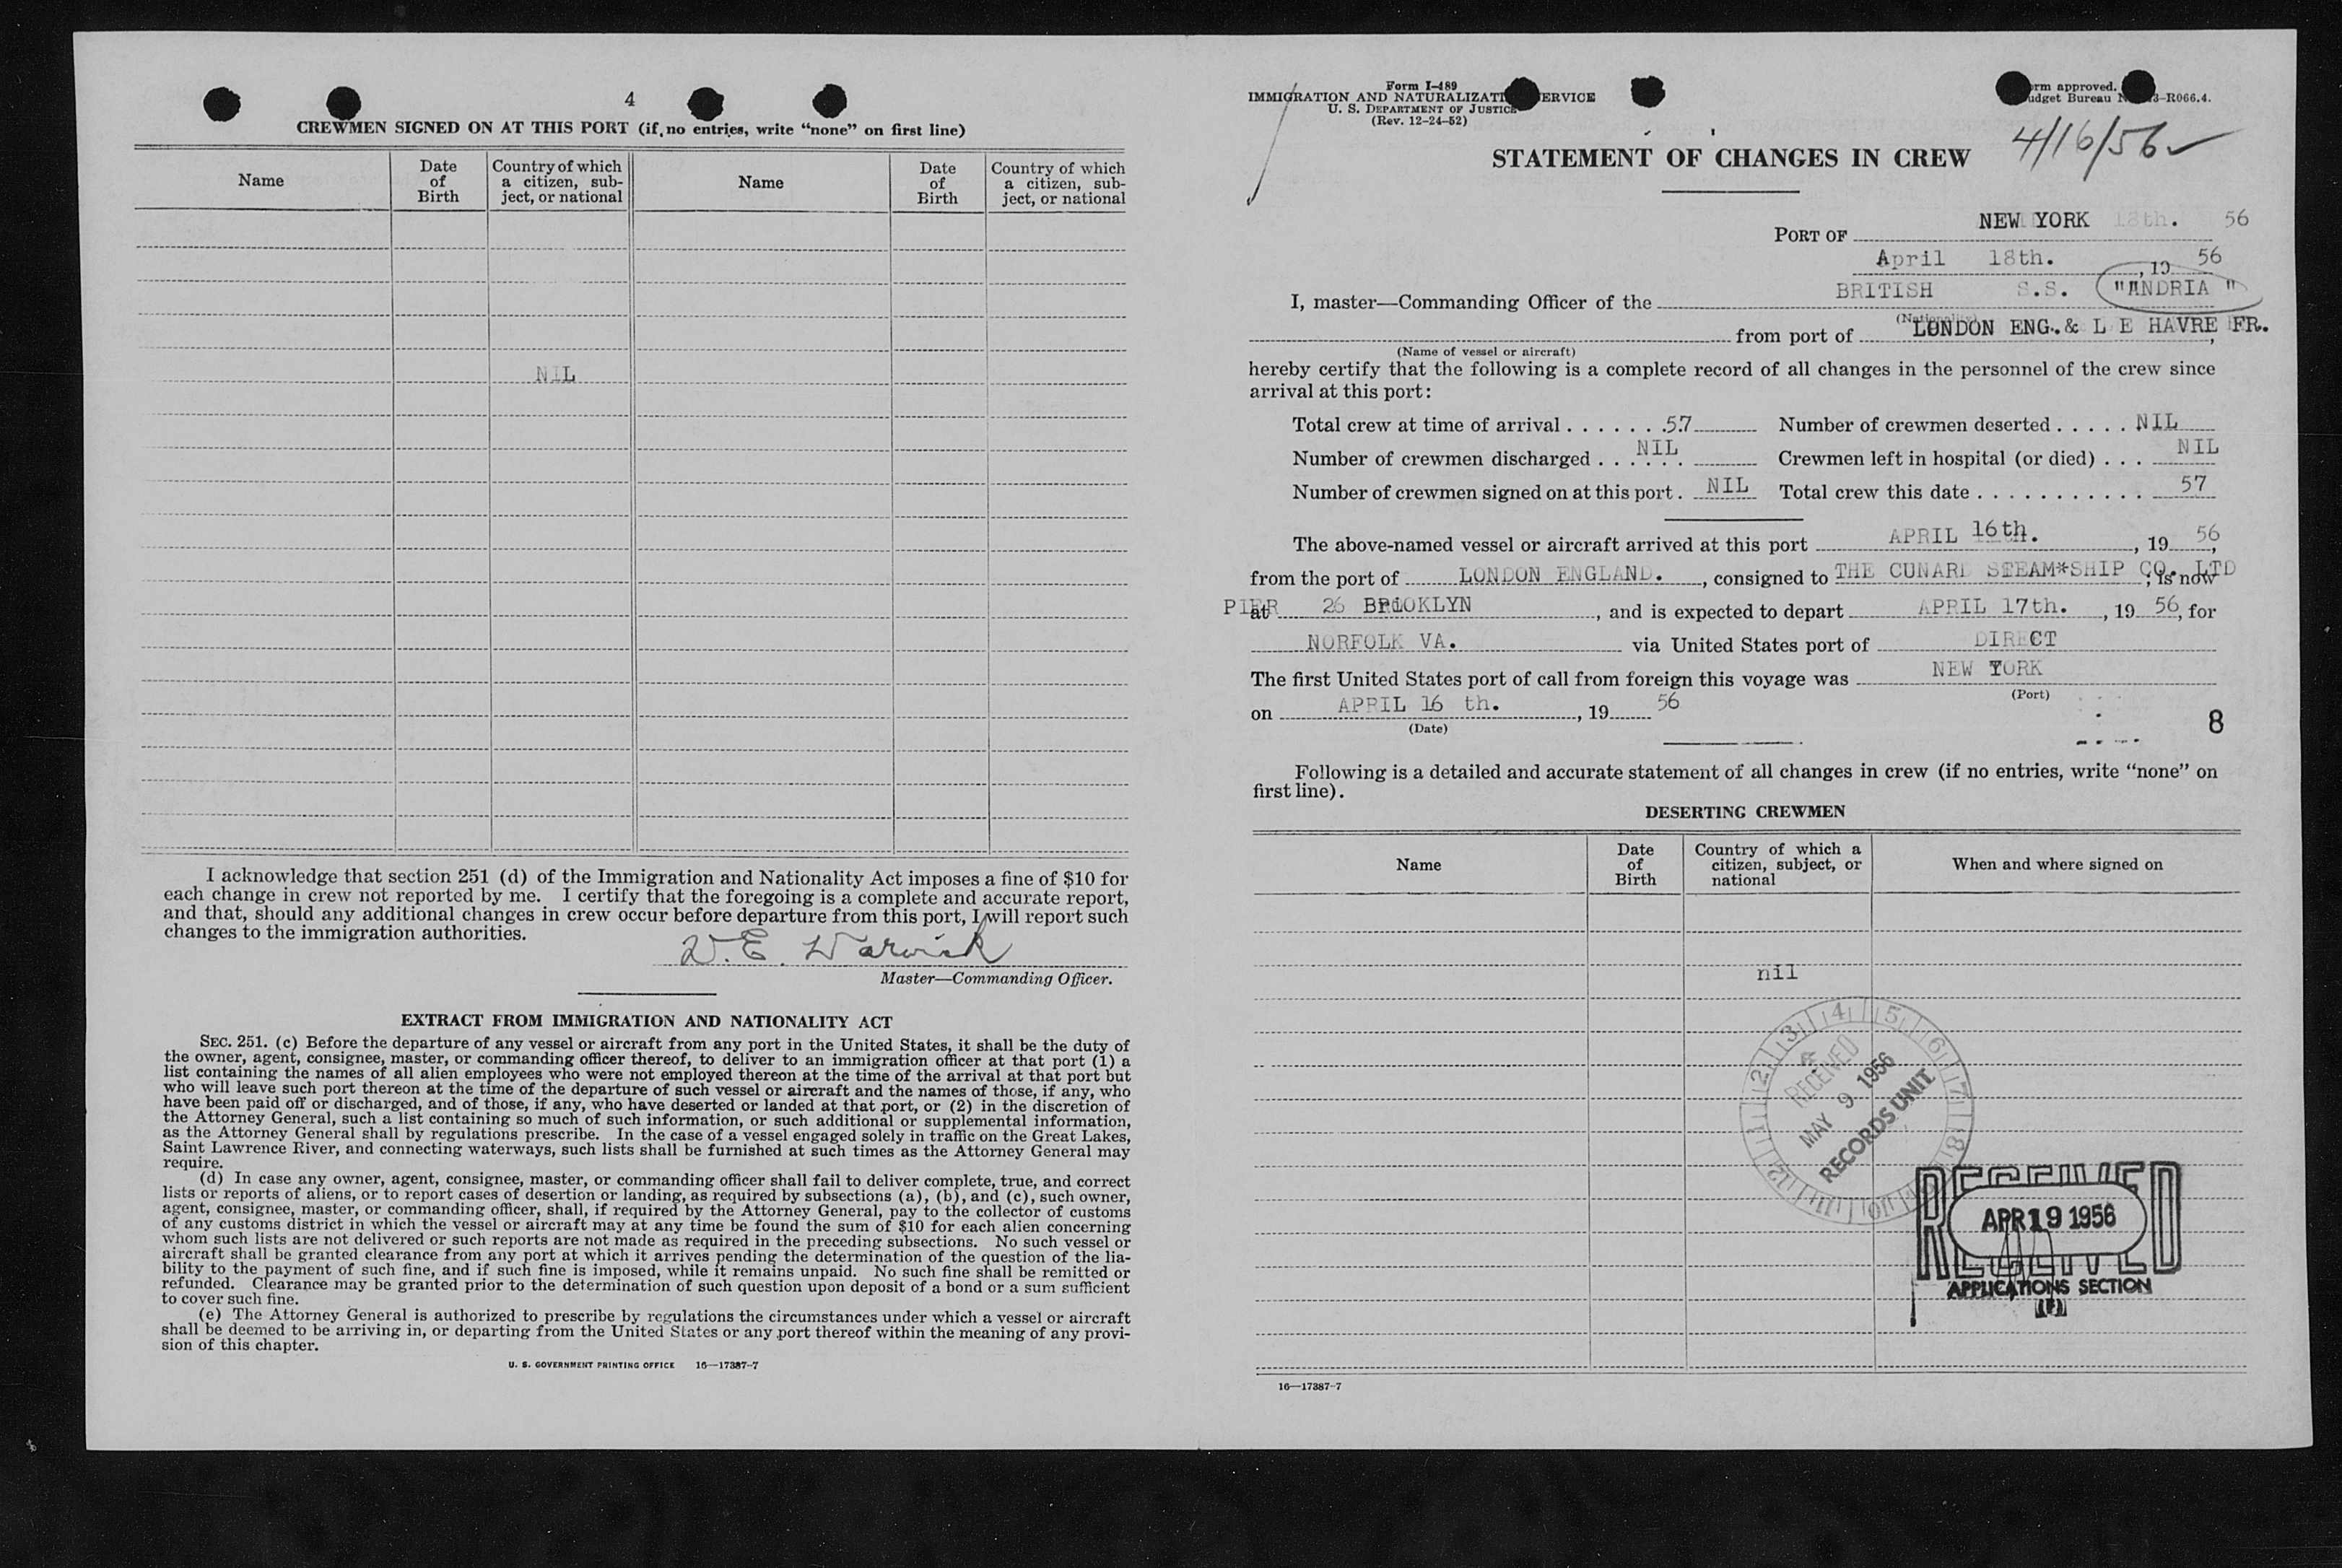 4
CREWMEN SIGNED ON AT THIS PORT (if no entries, write “none” on first line)
Name
Date of Birth
Country of which a citizen, sub-ject, or national
Name
Date of Birth
Country of which a citizen, sub-ject, or national
NIL
I acknowledge that section 251 (d) of the Immigration and Nationality Act imposes a fine of $10 for
each change in crew not reported by me. I certify that the foregoing is a complete and accurate report,
and that, should any additional changes in crew occur before departure from this port, I will report such
changes to the immigration authorities.
W. E. Warwick
Master—Commanding Officer.
EXTRACT FROM IMMIGRATION AND NATIONALITY ACT
SEC. 251. (c) Before the departure of any vessel or aircraft from any port in the United States, it shall be the duty of
the owner, agent, consignee, master, or commanding officer thereof, to deliver to an immigration officer at that port (1) a
list containing the names of all alien employees who were not employed thereon at the time of the arrival at that port but
who will leave such port thereon at the time of the departure of such vessel or aircraft and the names of those, if any, who
have been paid off or discharged, and of those, if any, who have deserted or landed at that port, or (2) in the discretion of
the Attorney General, such a list containing so much of such information, or such additional or supplemental information,
as the Attorney General shall by regulations prescribe. In the case of a vessel engaged solely in traffic on the Great Lakes,
Saint Lawrence River, and connecting waterways, such lists shall be furnished at such times as the Attorney General may
require.
(d) In case any owner, agent, consignee, master, or commanding officer shall fail to deliver complete, true, and correct
lists or reports of aliens, or to report cases of desertion or landing, as required by subsections (a), (b), and (c), such owner,
agent, consignee, master, or commanding officer, shall, if required by the Attorney General, pay to the collector of customs
of any customs district in which the vessel or aircraft may at any time be found the sum of $10 for each alien concerning
whom such lists are not delivered or such reports are not made as required in the preceding subsections. No such vessel or
aircraft shall be granted clearance from any port at which it arrives pending the determination of the question of the lia-
bility to the payment of such fine, and if such fine is imposed, while it remains unpaid. No such fine shall be remitted or
refunded. Clearance may be granted prior to the determination of such question upon deposit of a bond or a sum sufficient
to cover such fine.
(e) The Attorney General is authorized to prescribe by regulations the circumstances under which a vessel or aircraft
shall be deemed to be arriving in, or departing from the United States or any port thereof within the meaning of any provi-
sion of this chapter.
U. S. GOVERNMENT PRINTING OFFICE 16—17387-7
Form I-489
IMMIGRATION AND NATURALIZATI ERVICE
U. S. DEPARTMENT OF JUSTICE
(Rev. 12-24-52)
rm approved.
udget Bureau N 3-R066.4.
STATEMENT OF CHANGES IN CREW
4/16/56
PORT OF NEW YORK 18th. 56
April 18th. , 19 56
I, master—Commanding Officer of the BRITISH S.S. "ANDRIA "
(Nationality)
from port of LONDON ENG. & L E HAVRE FR.,
(Name of vessel or aircraft)
hereby certify that the following is a complete record of all changes in the personnel of the crew since
arrival at this port:
Total crew at time of arrival . . . . . . . 57 Number of crewmen deserted . . . . . NIL
Number of crewmen discharged . . . . . . NIL Crewmen left in hospital (or died) . . . NIL
Number of crewmen signed on at this port . NIL Total crew this date . . . . . . . . . . . 57
The above-named vessel or aircraft arrived at this port APRIL 16th. , 19 56,
from the port of LONDON ENGLAND. , consigned to THE CUNARD STEAM*SHIP CO. LTD ; is now
at PIER 26 BROOKLYN , and is expected to depart APRIL 17th. , 19 56, for
NORFOLK VA. via United States port of DIRECT
The first United States port of call from foreign this voyage was NEW YORK
(Port)
on APRIL 16 th. , 19 56
(Date)
8
Following is a detailed and accurate statement of all changes in crew (if no entries, write “none” on
first line).
DESERTING CREWMEN
Name
Date of Birth
Country of which a citizen, subject, or national
When and where signed on
nil
RECEIVED
MAY 9 1956
RECORDS UNIT
RECEIVED
APR 19 1956
APPLICATIONS SECTION
16—17387-7